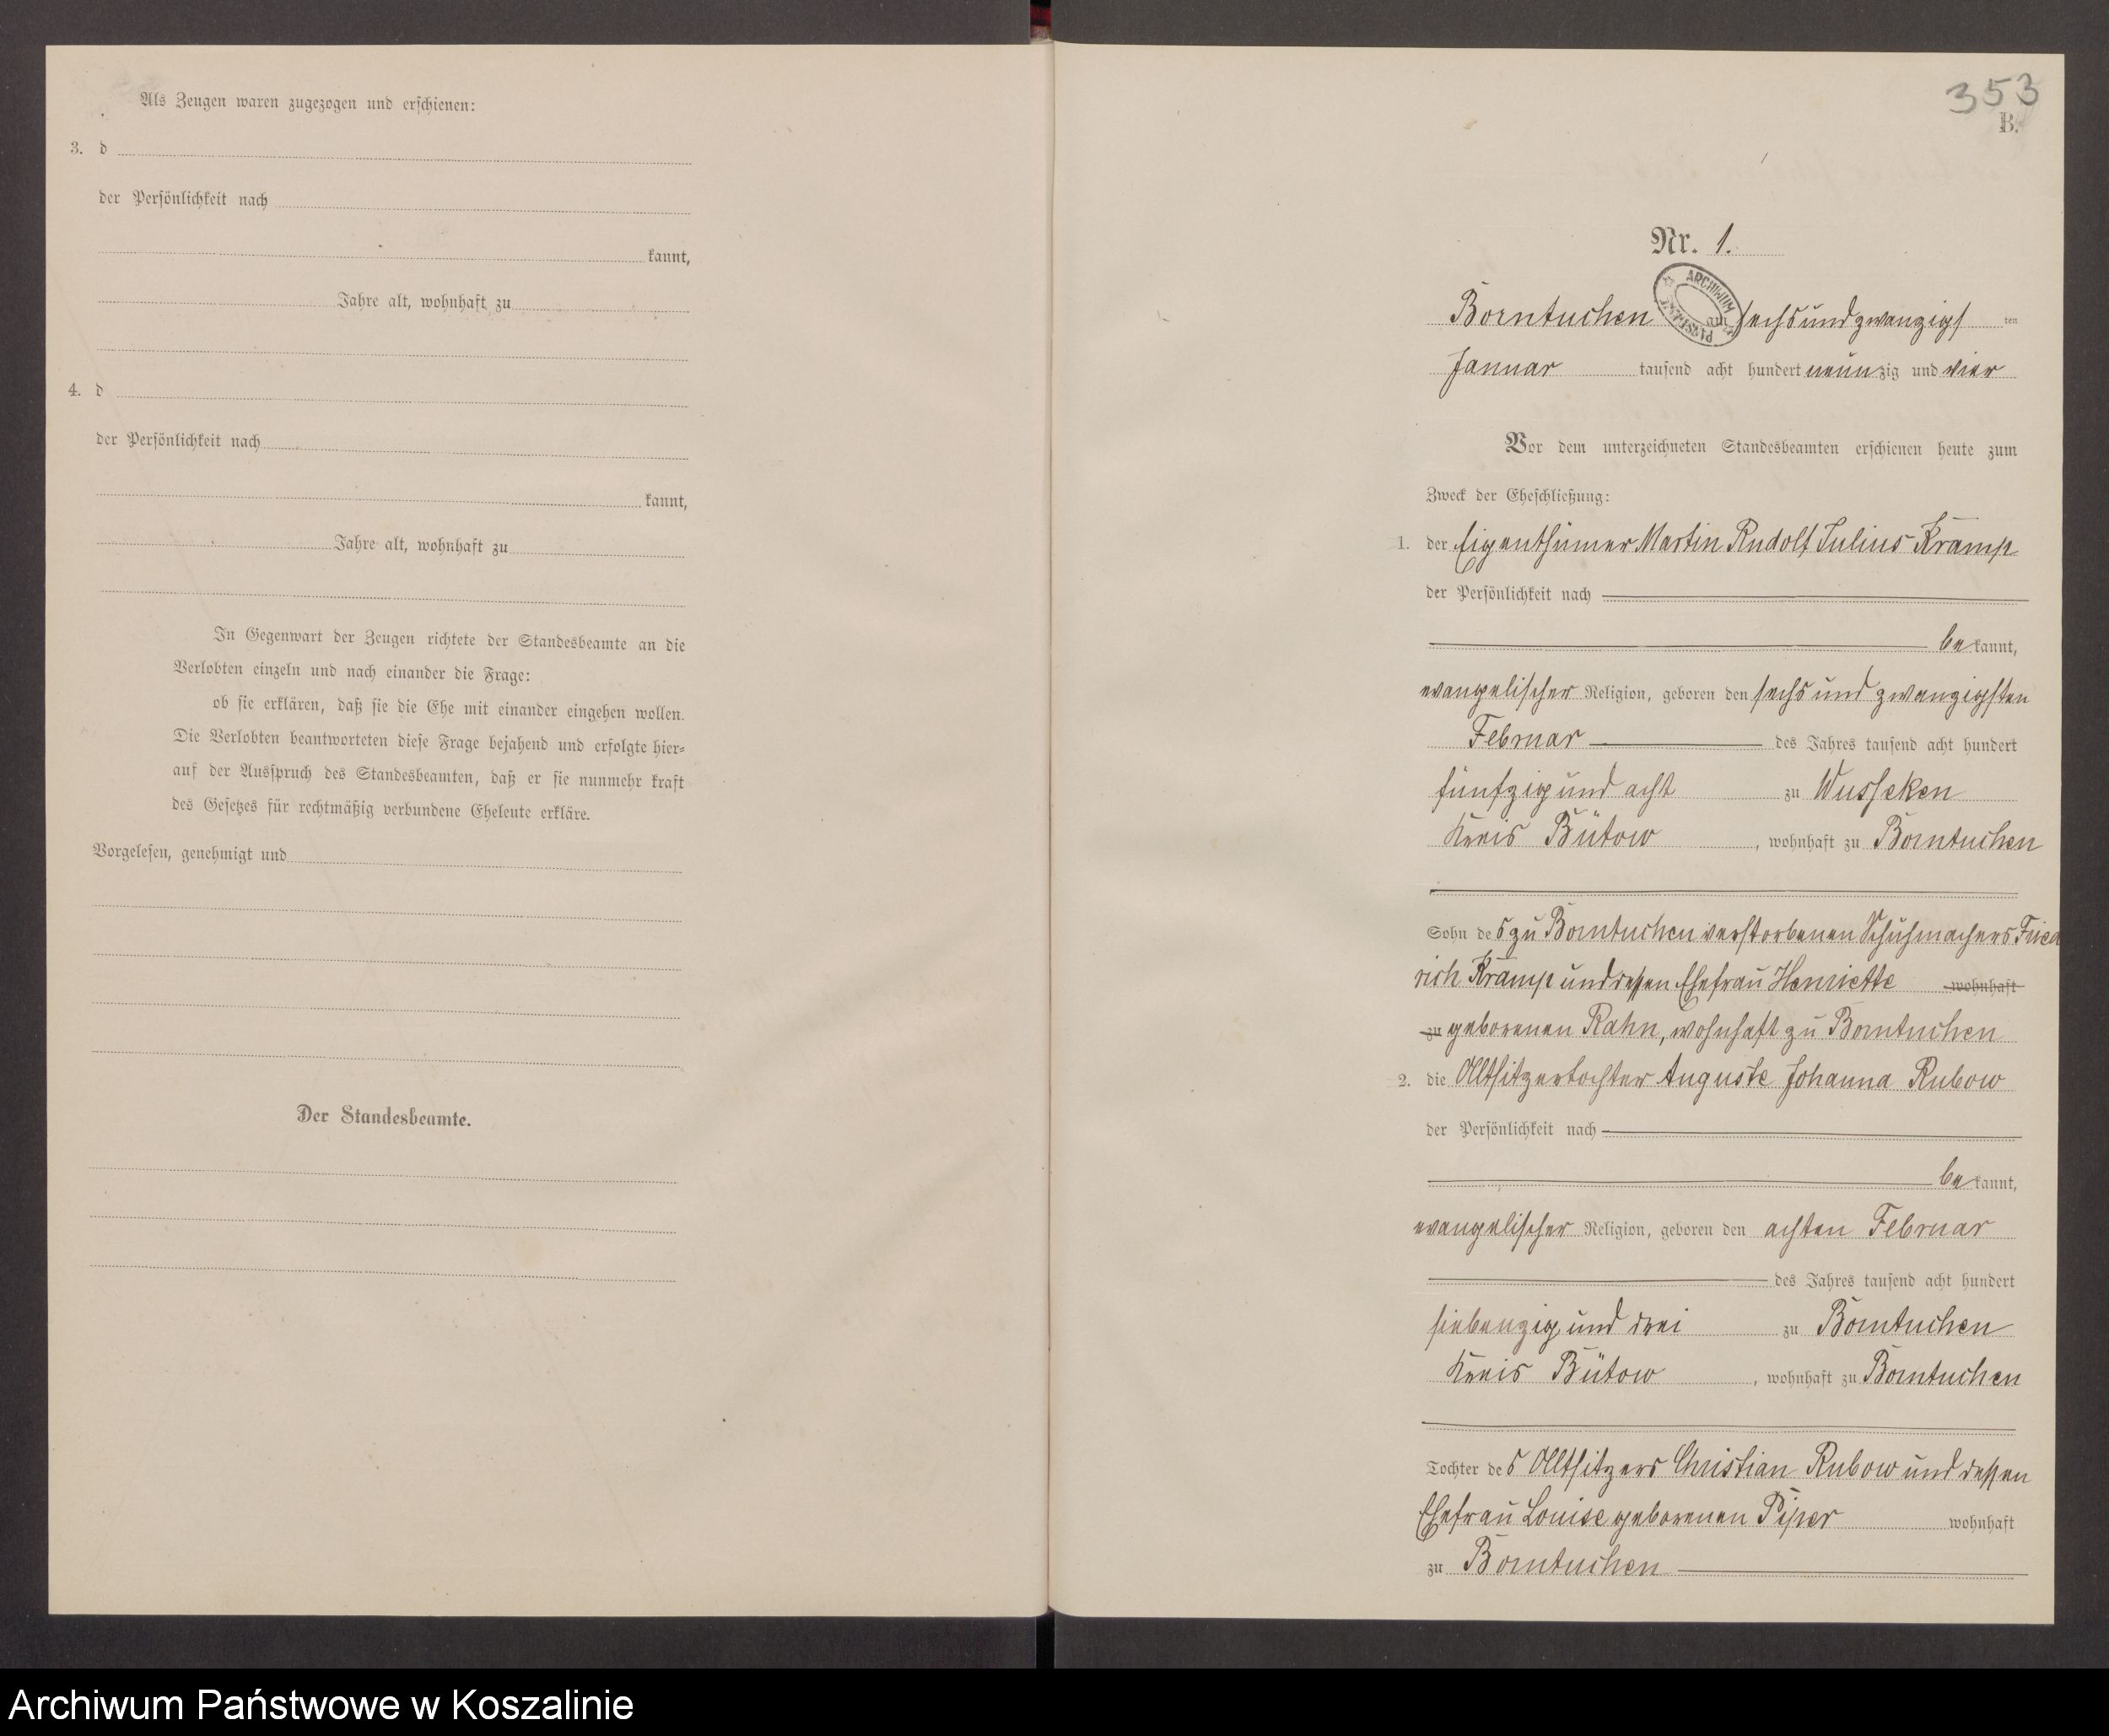 Als Zeugen waren zugezogen und erschienen:
3. d
der Persönlichkeit nach
kannt,
Jahre alt, wohnhaft zu
4. d
der Persönlichkeit nach
kannt,
Jahre alt, wohnhaft zu
In Gegenwart der Zeugen richtete der Standesbeamte an die
Verlobten einzeln und nach einander die Frage:
ob sie erklären, daß sie die Ehe mit einander eingehen wollen.
Die Verlobten beantworteten diese Frage bejahend und erfolgte hier-
auf der Ausspruch des Standesbeamten, daß er sie nunmehr kraft
des Gesetzes für rechtmäßig verbundene Eheleute erkläre.
Vorgelesen, genehmigt und
Der Standesbeamte.
353
B.
Nr. 1.
ARCHIWUM PAŃSTW
Borntuchen am sechsundzwanzigs ten
Januar tausend acht hundert neunzig und vier
Vor dem unterzeichneten Standesbeamten erschienen heute zum
Zweck der Eheschließung:
1. der Eigenthümer Martin Rudolf Julius Kramp
der Persönlichkeit nach
be kannt,
evangelischer Religion, geboren den sechs und zwanzigsten
Februar des Jahres tausend acht hundert
fünfzig und acht zu Wusseken
Kreis Bütow, wohnhaft zu Borntuchen
Sohn des zu Borntuchen verstorbenen Schuhmachers Fried
rich Kramp und dessen Ehefrau Henriette wohnhaft
zu geborenen Rahn, wohnhaft zu Borntuchen
2. die Altsitzertochter Auguste Johanna Rubow
der Persönlichkeit nach
be kannt,
evangelischer Religion, geboren den achten Februar
des Jahres tausend acht hundert
siebenzig und drei zu Borntuchen
Kreis Bütow, wohnhaft zu Borntuchen
Tochter des Altsitzers Christian Rubow und dessen
Ehefrau Louise geborenen Piper wohnhaft
zu Borntuchen
Archiwum Państwowe w Koszalinie